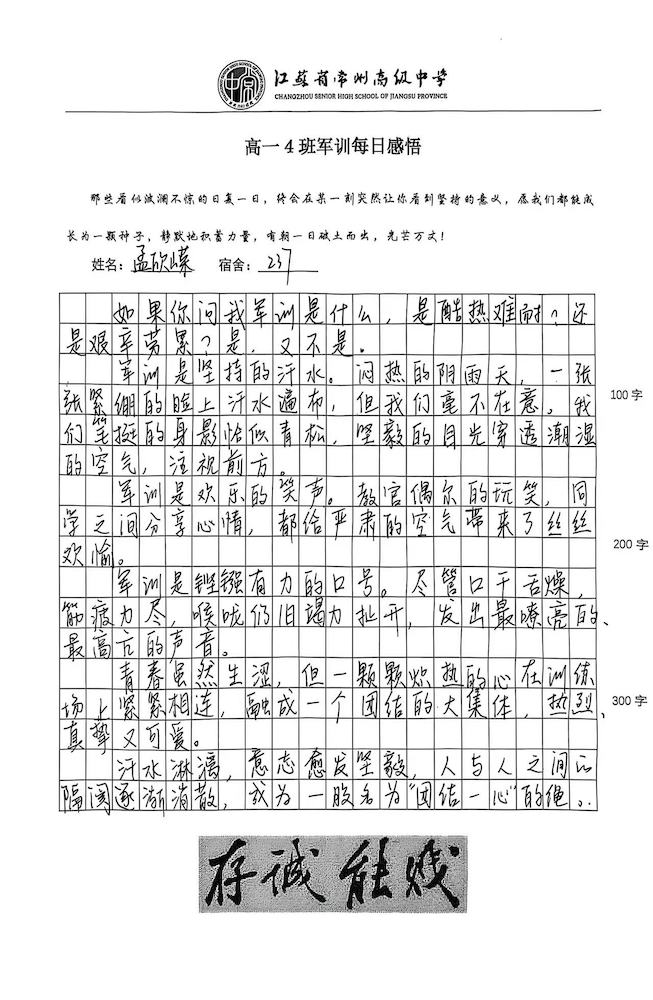 江苏省常州高级中学
CHANGZHOU SENIOR HIGH SCHOOL OF JIANGSU PROVINCE
高一 4 班军训每日感悟
那些看似波澜不惊的日复一日，终会在某一刻突然让你看到坚持的意义，愿我们都能成
长为一颗种子，静默地积蓄力量，有朝一日破土而出，光芒万丈！
姓名：孟欣嵘 宿舍：237
如果你问我军训是什么，是酷热难耐？还
是艰辛劳累？是，又不是。
军训是坚持的汗水。闷热的阴雨天，一张
张紧绷的脸上汗水遍布，但我们毫不在意。我
100 字
们笔挺的身影恰似青松，坚毅的目光穿透潮湿
的空气，注视前方。
军训是欢乐的笑声。教官偶尔的玩笑，同
学之间分享心情，都给严肃的空气带来了丝丝
200 字
欢愉。
军训是铿锵有力的口号。尽管口干舌燥，
筋疲力尽，喉咙仍旧竭力扯开，发出最嘹亮的、
最高亢的声音。
青春虽然生涩，但一颗颗炽热的心在训练
场上紧紧相连，融成一个团结的大集体，热烈、
300 字
真挚又可爱。
汗水淋漓，意志愈发坚毅，人与人之间的
隔阂逐渐消散，成为一股名为“团结一心”的绳。
存诚能贱